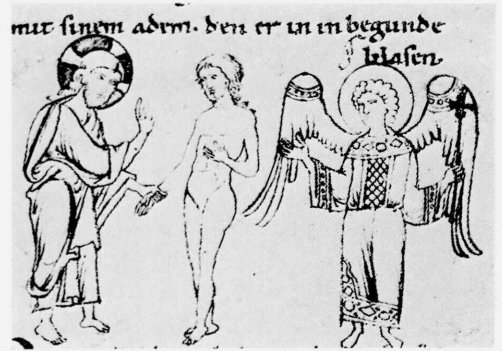 mit sinem adem. den er in in begunde
blasen.